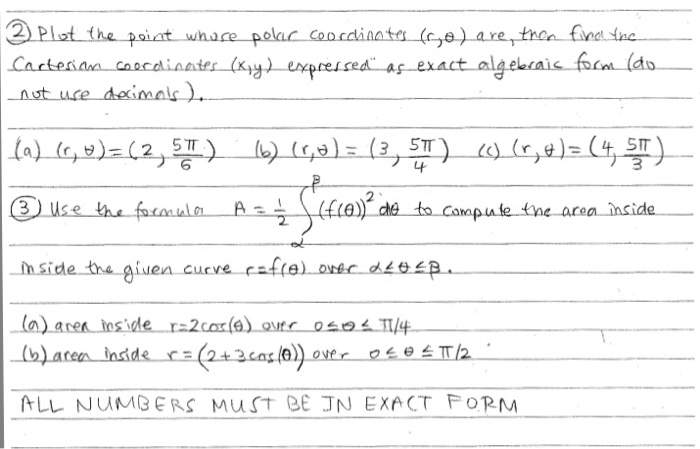 ② Plot the point whose polar coordinates (r,θ) are, then find the
Cartesian coordinates (x,y) expressed as exact algebraic form (do
not use decimals).
(a) (r,θ)=(2, 5π/6) (b) (r,θ)=(3, 5π/4) (c) (r,θ)=(4, 5π/3)
③ Use the formula A = 1/2 ∫_α^β (f(θ))² dθ to compute the area inside
inside the given curve r=f(θ) over α≤θ≤β.
(a) area inside r=2cos(θ) over 0≤θ≤π/4
(b) area inside r=(2+3cos(θ)) over 0≤θ≤π/2
ALL NUMBERS MUST BE IN EXACT FORM